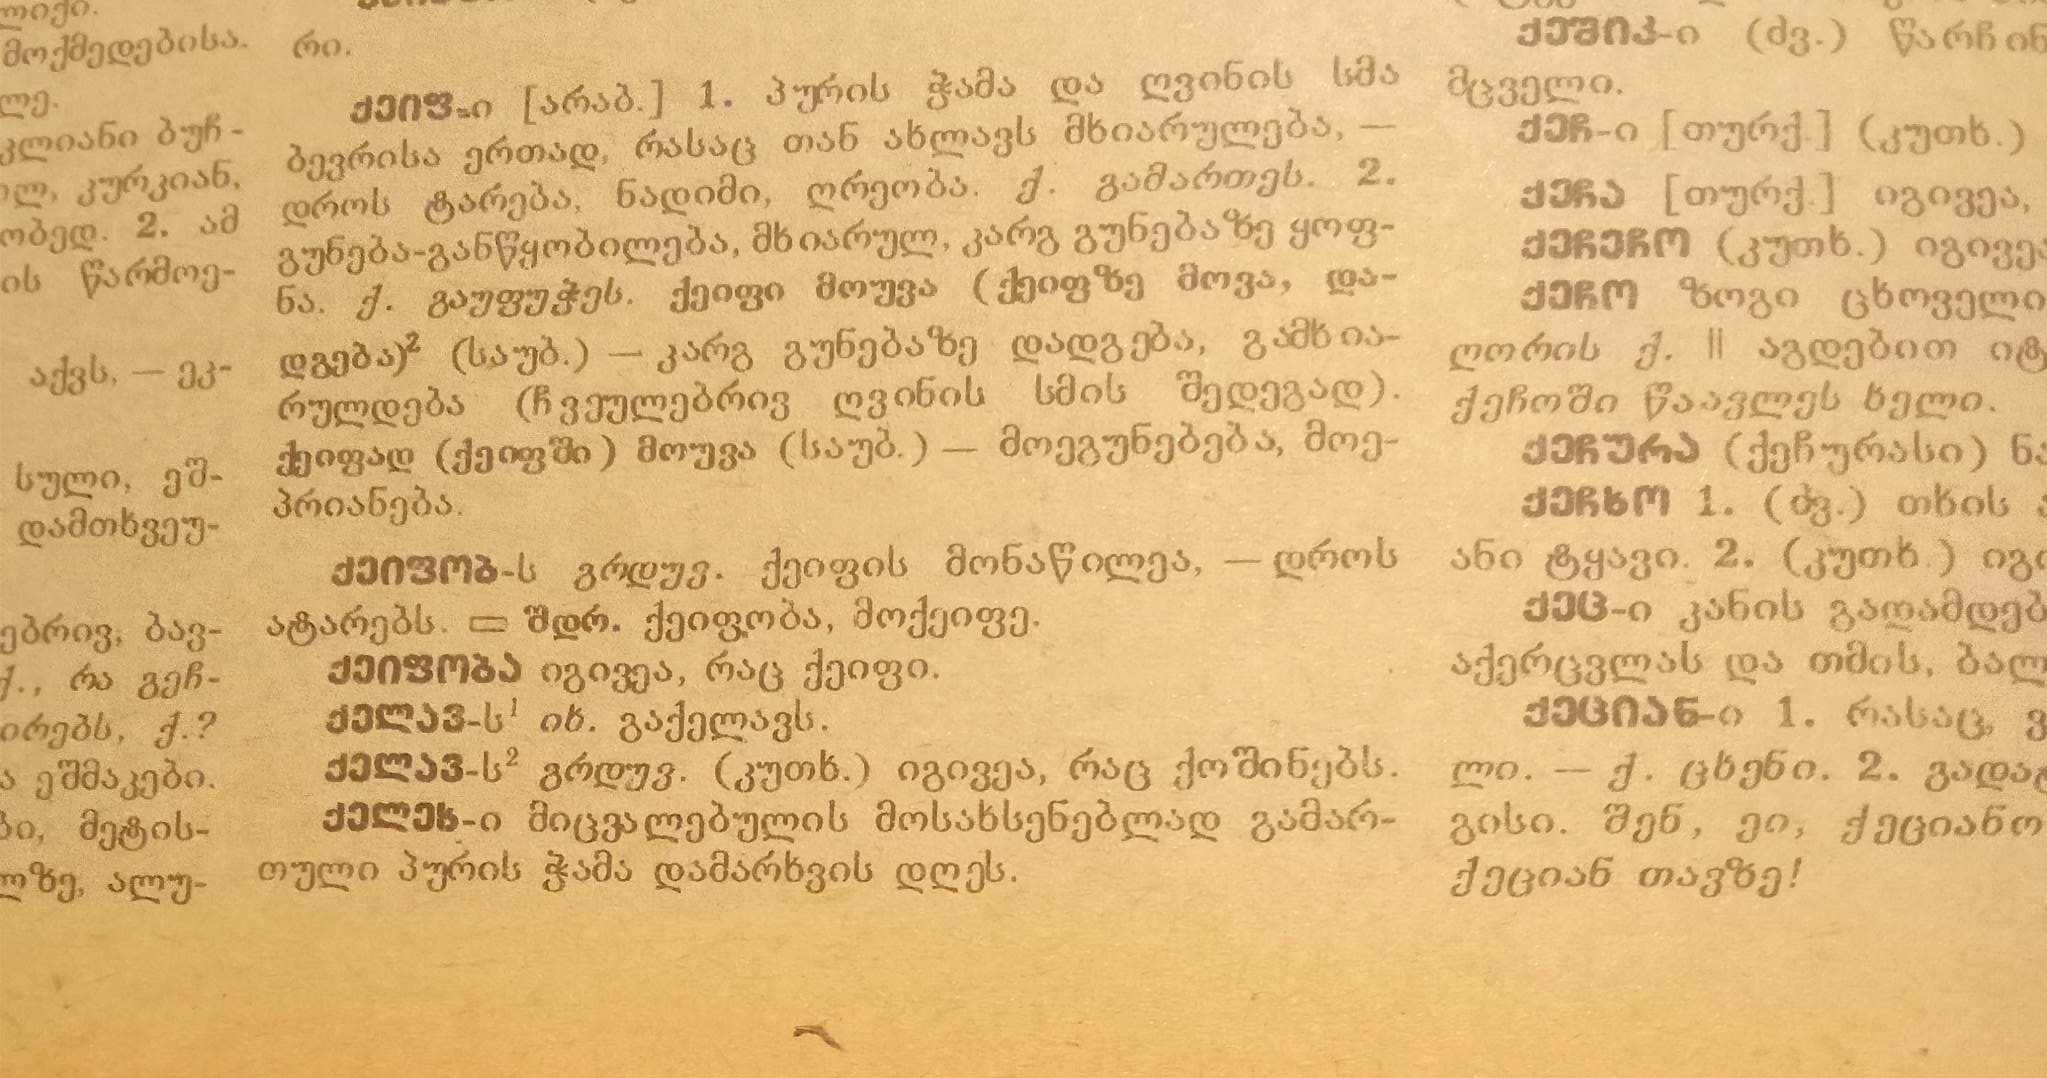 მოქმედებისა.
ლე.
კლიანი ბუჩ-
კურკიან,
ობედ. 2. ამ
ის წარმოე-
აქვს, — ეკ-
სული, ეშ-
დამთხვეუ-
ებრივ, ბავ-
ქ., რა გეჩ-
ირებს, ქ.?
ა ეშმაკები.
ბი, მეტის-
ლზე, ალუ-
რი.
ქეიფ-ი [არაბ.] 1. პურის ჭამა და ღვინის სმა
ბევრისა ერთად, რასაც თან ახლავს მხიარულება, —
დროს ტარება, ნადიმი, ღრეობა. ქ. გამართეს. 2.
გუნება-განწყობილება, მხიარულ, კარგ გუნებაზე ყოფ-
ნა. ქ. გაუფუჭეს. ქეიფი მოუვა (ქეიფზე მოვა, და-
დგება)² (საუბ.) — კარგ გუნებაზე დადგება, გამხია-
რულდება (ჩვეულებრივ ღვინის სმის შედეგად).
ქეიფად (ქეიფში) მოუვა (საუბ.) — მოეგუნებება, მოე-
პრიანება.
ქეიფობ-ს გრდუვ. ქეიფის მონაწილეა, — დროს
ატარებს. ▭ შდრ. ქეიფობა, მოქეიფე.
ქეიფობა იგივეა, რაც ქეიფი.
ქელავ-ს¹ იხ. გაქელავს.
ქელავ-ს² გრდუვ. (კუთხ.) იგივეა, რაც ქოშინებს.
ქელეხ-ი მიცვალებულის მოსახსენებლად გამარ-
თული პურის ჭამა დამარხვის დღეს.
ქეშიკ-ი (ძვ.) წარჩინ
მცველი.
ქეჩ-ი [თურქ.] (კუთხ.)
ქეჩა [თურქ.] იგივეა,
ქეჩეჩო (კუთხ.) იგივეა
ქეჩო ზოგი ცხოველი
ღორის ქ. || აგდებით იტ
ქეჩოში წაავლეს ხელი.
ქეჩურა (ქეჩურასი) ნა
ქეჩხო 1. (ძვ.) თხის
ანი ტყავი. 2. (კუთხ.) იგი
ქეც-ი კანის გადამდებ
აქერცვლას და თმის, ბალ
ქეციან-ი 1. რასაც, ვ
ლი. — ქ. ცხენი. 2. გადატ
გისი. შენ, ეი, ქეციანო
ქეციან თავზე!